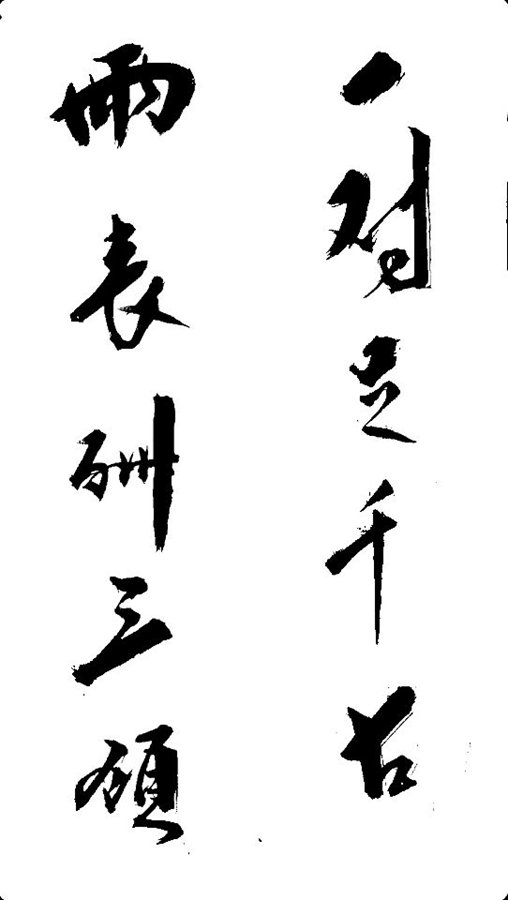 一对足千古
兩表酬三顧